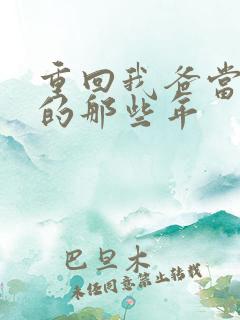 重回我爸当
的那些年
巴旦木
未经同意禁止转载